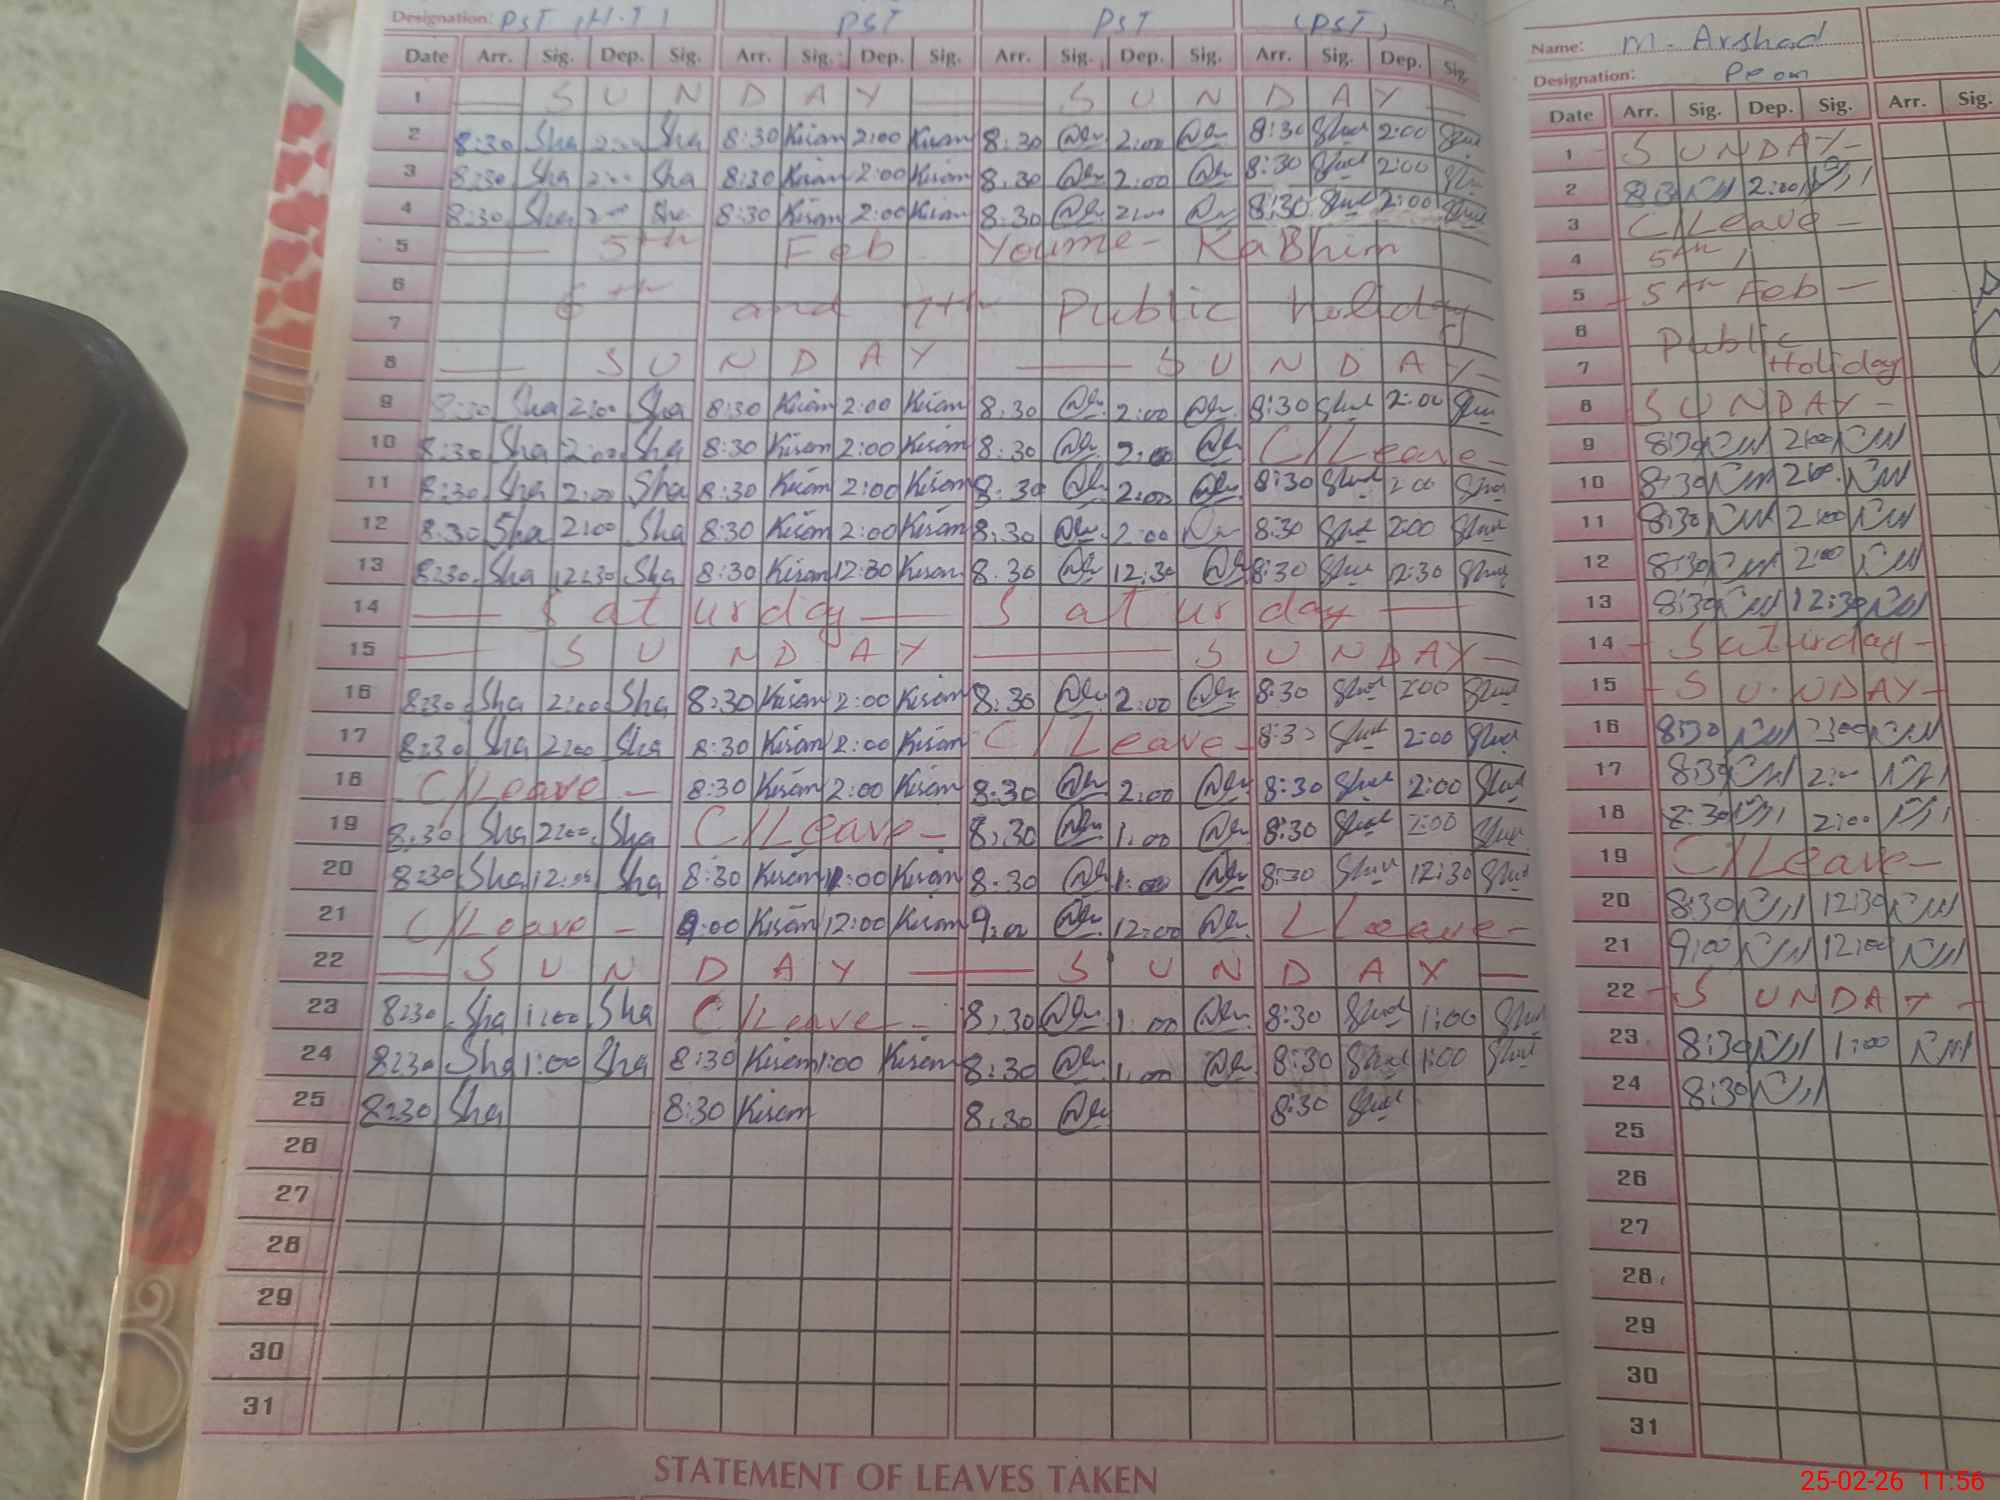 Designation: PST (H.T) PST PST (PST)
Date Arr. Sig. Dep. Sig. Arr. Sig. Dep. Sig. Arr. Sig. Dep. Sig. Arr. Sig. Dep. Sig.
1 — S U N D A Y — S U N D A Y —
2 8:30 Sha 2:00 Sha 8:30 Kiran 2:00 Kiran 8:30 2:00 8:30 2:00
3 8:30 Sha 2:00 Sha 8:30 Kiran 2:00 Kiran 8:30 2:00 8:30 2:00
4 8:30 Sha 2:00 Sha 8:30 Kiran 2:00 Kiran 8:30 2:00 8:30 2:00
5 — 5th Feb Youme- KaShim
6 6th and 7th Public holiday
7
8 — S U N D A Y — S U N D A Y —
9 8:30 Sha 2:00 Sha 8:30 Kiran 2:00 Kiran 8:30 2:00 8:30 2:00
10 8:30 Sha 2:00 Sha 8:30 Kiran 2:00 Kiran 8:30 2:00 C/Leave -
11 8:30 Sha 2:00 Sha 8:30 Kiran 2:00 Kiran 8:30 2:00 8:30 2:00
12 8:30 Sha 2:00 Sha 8:30 Kiran 2:00 Kiran 8:30 2:00 8:30 2:00
13 8:30 Sha 12:30 Sha 8:30 Kiran 12:30 Kiran 8:30 12:30 8:30 12:30
14 — Saturday — Saturday —
15 — S U N D A Y — S U N D A Y —
16 8:30 Sha 2:00 Sha 8:30 Kiran 2:00 Kiran 8:30 2:00 8:30 2:00
17 8:30 Sha 2:00 Sha 8:30 Kiran 2:00 Kiran C/Leave - 8:30 2:00
18 C/Leave - 8:30 Kiran 2:00 Kiran 8:30 2:00 8:30 2:00
19 8:30 Sha 2:00 Sha C/Leave - 8:30 1:00 8:30 2:00
20 8:30 Sha Sha 8:30 Kiran 1:00 Kiran 8:30 1:00 8:30 12:30
21 C/Leave - 9:00 Kiran 12:00 Kiran 9:00 12:00 L Leave -
22 — S U N D A Y — S U N D A Y —
23 8:30 Sha 1:00 Sha C/Leave - 8:30 1:00 8:30 1:00
24 8:30 Sha 1:00 Sha 8:30 Kiran 1:00 Kiran 8:30 1:00 8:30 1:00
25 8:30 Sha 8:30 Kiran 8:30 8:30
26
27
28
29
30
31
STATEMENT OF LEAVES TAKEN
Name: M. Arshad
Designation: Peon
Date Arr. Sig. Dep. Sig. Arr. Sig.
1 S U N D A Y -
2 8:30 2:00
3 C/Leave -
4 5th
5 - 5th Feb -
6 Public
7 Holiday
8 S U N D A Y -
9 8:30 2:00
10 8:30 2:00
11 8:30 2:00
12 8:30 2:00
13 8:30 12:30
14 - Saturday -
15 - S U N D A Y -
16 8:30
17 8:30 2:00
18 8:30 2:00
19 C/Leave -
20 8:30 12:30
21 9:00 12:00
22 - S U N D A Y -
23 8:30 1:00
24 8:30
25
26
27
28
29
30
31
25-02-26 11:56